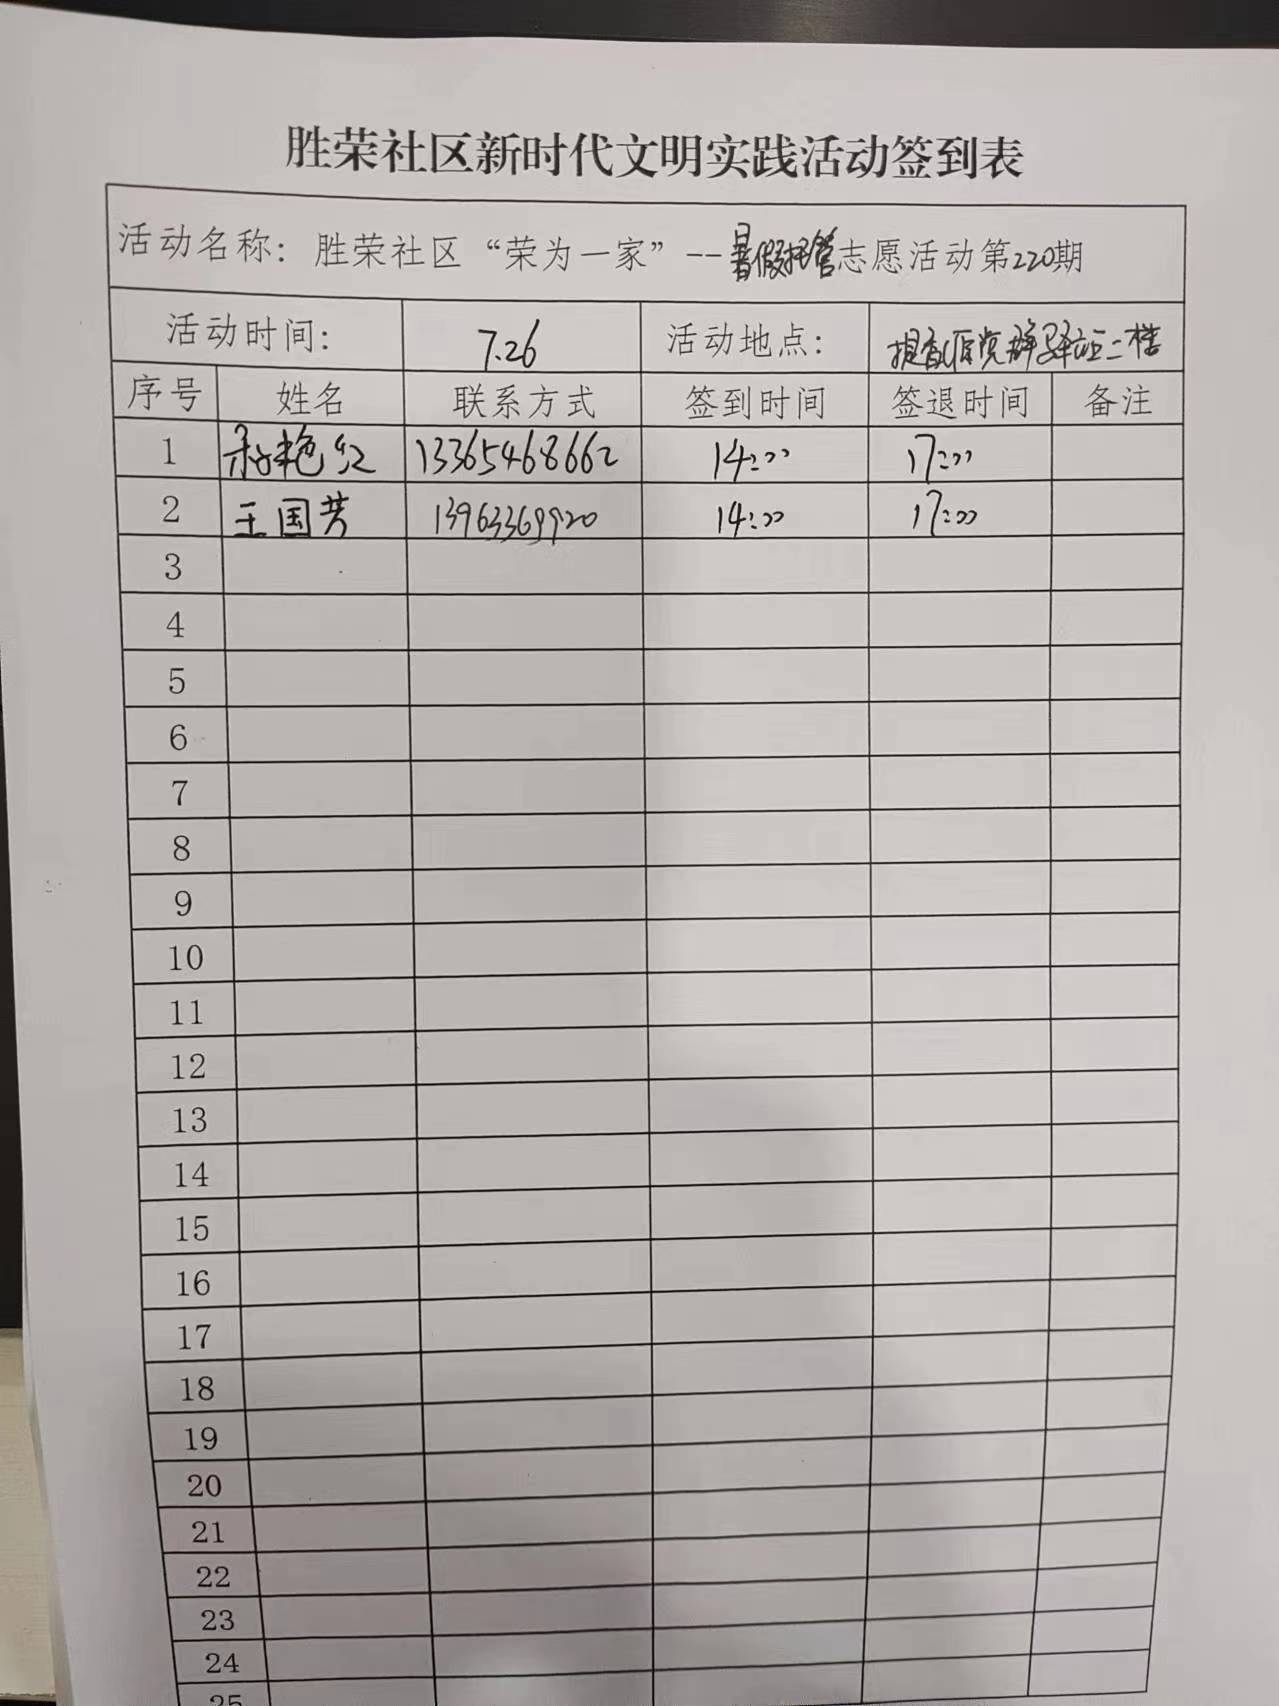 胜荣社区新时代文明实践活动签到表
活动名称：胜荣社区“荣为一家”--暑假托管志愿活动第220期
活动时间： 7.26 活动地点： 二楼
序号 姓名 联系方式 签到时间 签退时间 备注
1 艳红 13365468662 14:00 17:00
2 王国芳 13963369920 14:00 17:00
3
4
5
6
7
8
9
10
11
12
13
14
15
16
17
18
19
20
21
22
23
24
25